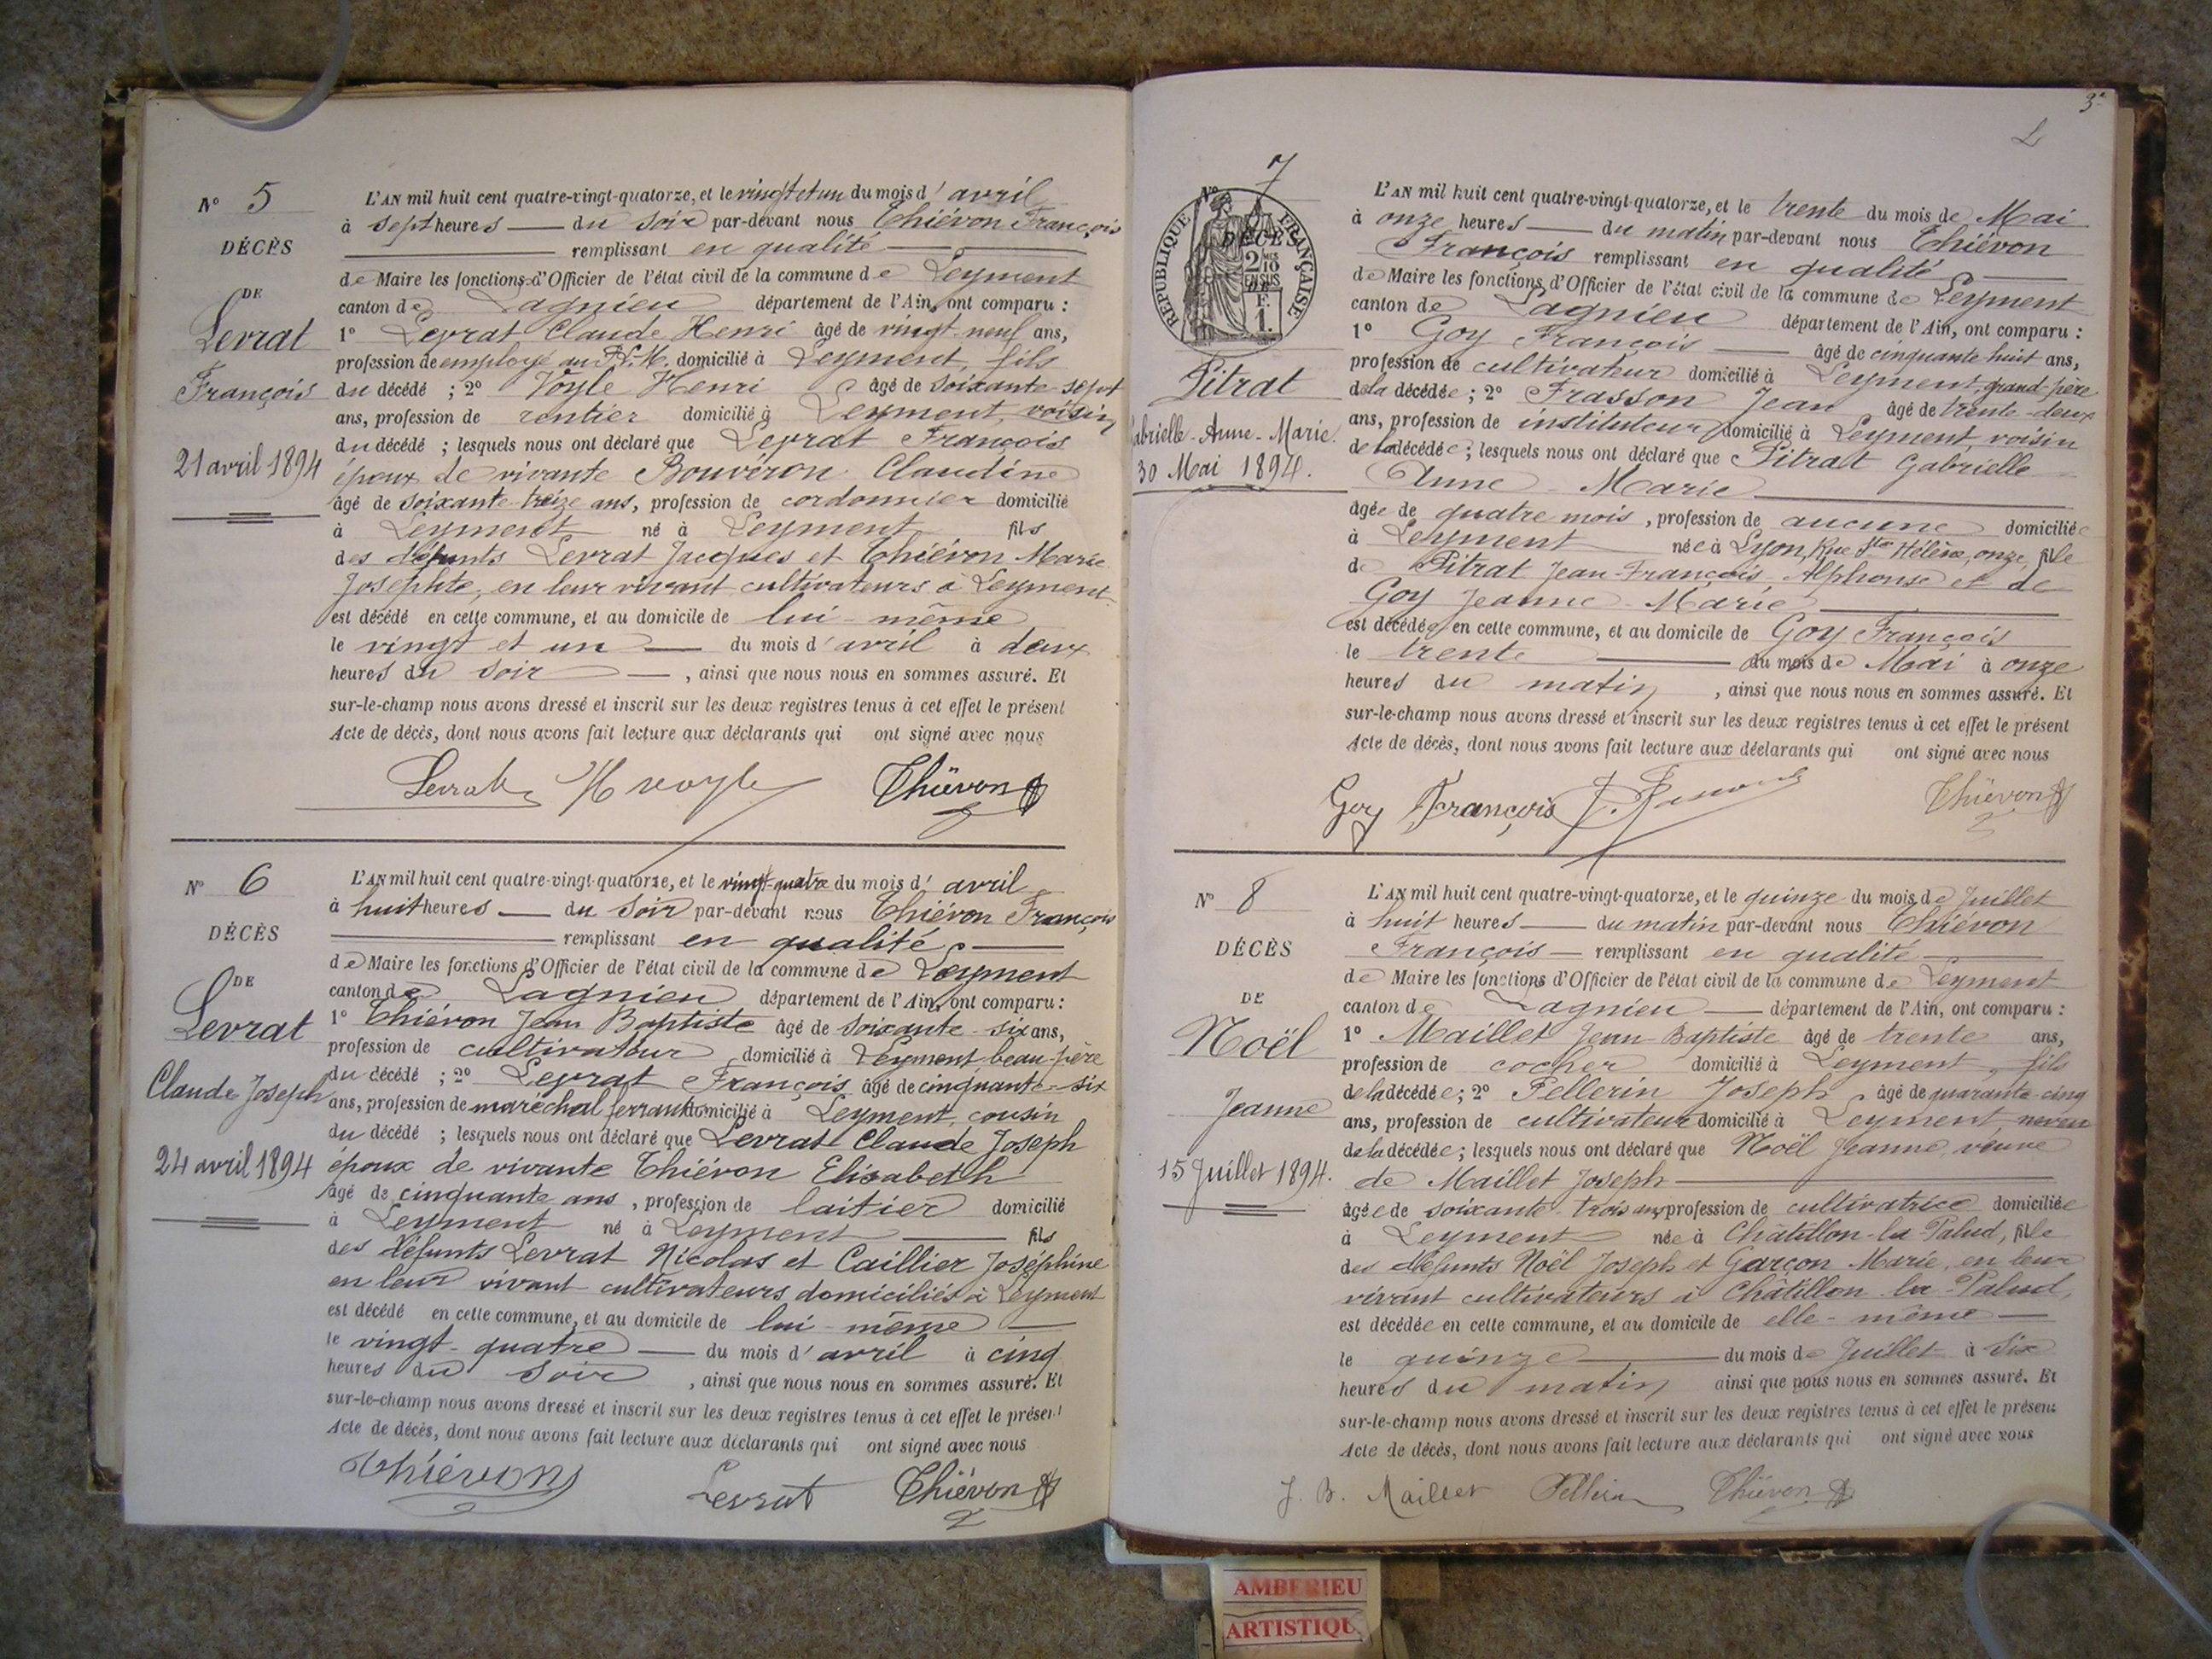 N° 5
DÉCÈS
DE
Levrat
François
21 avril 1894
L'AN mil huit cent quatre-vingt-quatorze, et le vingt et un du mois d'avril
à sept heures du soir par-devant nous Thiévon François
remplissant en qualité
de Maire les fonctions d'Officier de l'état civil de la commune de Leyment
canton de Lagnieu département de l'Ain, ont comparu :
1° Levrat Claude Henri âgé de vingt-neuf ans,
profession de employé au P.L.M. domicilié à Leyment, fils
du décédé ; 2° Voyle Henri âgé de soixante-sept
ans, profession de rentier domicilié à Leyment, voisin
du décédé ; lesquels nous ont déclaré que Levrat François
époux de vivante Bouvéron Claudine
âgé de soixante-treize ans, profession de cordonnier domicilié
à Leyment né à Leyment fils
des défunts Levrat Jacques et Thiévon Marie
Josephte, en leur vivant cultivateurs à Leyment
est décédé en cette commune, et au domicile de lui-même
le vingt et un du mois d'avril à deux
heures du soir, ainsi que nous nous en sommes assuré. Et
sur-le-champ nous avons dressé et inscrit sur les deux registres tenus à cet effet le présent
Acte de décès, dont nous avons fait lecture aux déclarants qui ont signé avec nous
Levrat H Voyle Thiévon
N° 6
DÉCÈS
DE
Levrat
Claude Joseph
24 avril 1894
L'AN mil huit cent quatre-vingt-quatorze, et le vingt-quatre du mois d'avril
à huit heures du soir par-devant nous Thiévon François
remplissant en qualité
de Maire les fonctions d'Officier de l'état civil de la commune de Leyment
canton de Lagnieu département de l'Ain, ont comparu :
1° Thiévon Jean Baptiste âgé de soixante-six ans,
profession de cultivateur domicilié à Leyment beau-père
du décédé ; 2° Levrat François âgé de cinquante-six
ans, profession de maréchal ferrant domicilié à Leyment, cousin
du décédé ; lesquels nous ont déclaré que Levrat Claude Joseph
époux de vivante Thiévon Elisabeth
âgé de cinquante ans, profession de laitier domicilié
à Leyment né à Leyment fils
des défunts Levrat Nicolas et Caillier Joséphine
en leur vivant cultivateurs domiciliés à Leyment
est décédé en cette commune, et au domicile de lui-même
le vingt-quatre du mois d'avril à cinq
heures du soir, ainsi que nous nous en sommes assuré. Et
sur-le-champ nous avons dressé et inscrit sur les deux registres tenus à cet effet le présent
Acte de décès, dont nous avons fait lecture aux déclarants qui ont signé avec nous
Thiévon Levrat Thiévon
3e
N° 7
DÉCÈS
RÉPUBLIQUE FRANÇAISE
2 MES
10
EN SUS
1 F.
Pitrat
Gabrielle-Anne-Marie
30 Mai 1894.
L'AN mil huit cent quatre-vingt-quatorze, et le trente du mois de Mai
à onze heures du matin par-devant nous Thiévon
François remplissant en qualité
de Maire les fonctions d'Officier de l'état civil de la commune de Leyment
canton de Lagnieu département de l'Ain, ont comparu :
1° Goy François âgé de cinquante huit ans,
profession de cultivateur domicilié à Leyment, grand-père
de la décédée ; 2° Frasson Jean âgé de trente-deux
ans, profession de instituteur domicilié à Leyment, voisin
de la décédée ; lesquels nous ont déclaré que Pitrat Gabrielle
Anne Marie
âgée de quatre mois, profession de aucune domiciliée
à Leyment née à Lyon, Rue Ste Hélène, onze, fille
de Pitrat Jean-François-Alphonse et de
Goy Jeanne-Marie
est décédée en cette commune, et au domicile de Goy François
le trente du mois de Mai à onze
heures du matin, ainsi que nous nous en sommes assuré. Et
sur-le-champ nous avons dressé et inscrit sur les deux registres tenus à cet effet le présent
Acte de décès, dont nous avons fait lecture aux déclarants qui ont signé avec nous
Goy François Thiévon
N° 8
DÉCÈS
DE
Noël
Jeanne
15 Juillet 1894.
L'AN mil huit cent quatre-vingt-quatorze, et le quinze du mois de Juillet
à huit heures du matin par-devant nous Thiévon
François remplissant en qualité
de Maire les fonctions d'Officier de l'état civil de la commune de Leyment
canton de Lagnieu département de l'Ain, ont comparu :
1° Maillet Jean-Baptiste âgé de trente ans,
profession de cocher domicilié à Leyment, fils
de la décédée ; 2° Pellerin Joseph âgé de quarante-cinq
ans, profession de cultivateur domicilié à Leyment, neveu
de la décédée ; lesquels nous ont déclaré que Noël Jeanne, veuve
de Maillet Joseph
âgée de soixante-trois ans, profession de cultivatrice domiciliée
à Leyment née à Châtillon-la-Palud, fille
des défunts Noël Joseph et Garçon Marie, en leur
vivant cultivateurs à Châtillon-la-Palud,
est décédée en cette commune, et au domicile de elle-même
le quinze du mois de Juillet à six
heures du matin ainsi que nous nous en sommes assuré. Et
sur-le-champ nous avons dressé et inscrit sur les deux registres tenus à cet effet le présent
Acte de décès, dont nous avons fait lecture aux déclarants qui ont signé avec nous
J. B. Maillet Pellerin Thiévon
AMBERIEU
ARTISTIQU